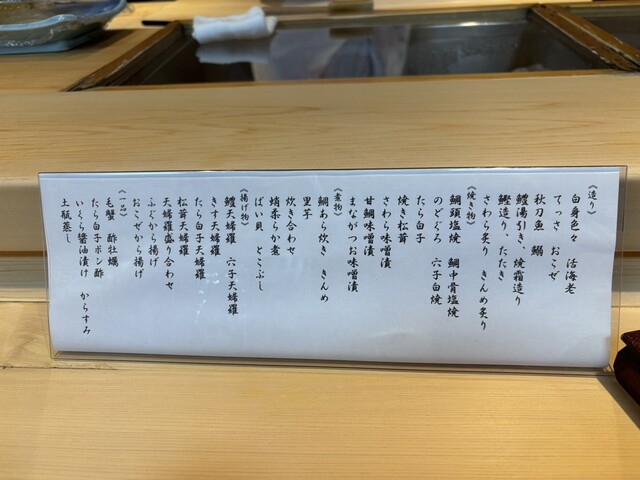 《造り》
白身色々　活海老
てっさ　おこぜ
秋刀魚　鰯
鱧湯引き、焼霜造り
鰹造り、たたき
さわら炙り　きんめ炙り
《焼き物》
鯛頭塩焼　鯛中骨塩焼
のどぐろ　穴子白焼
たら白子
焼き松茸
さわら味噌漬
甘鯛味噌漬
まながつお味噌漬
《煮物》
鯛あら炊き　きんめ
里芋
炊き合わせ
蛸柔らか煮
ばい貝　とこぶし
《揚げ物》
鱧天婦羅　穴子天婦羅
きす天婦羅
たら白子天婦羅
松茸天婦羅
天婦羅盛り合わせ
ふぐから揚げ
おこぜから揚げ
《一品》
毛蟹　酢牡蠣
たら白子ポン酢
いくら醤油漬け　からすみ
土瓶蒸し